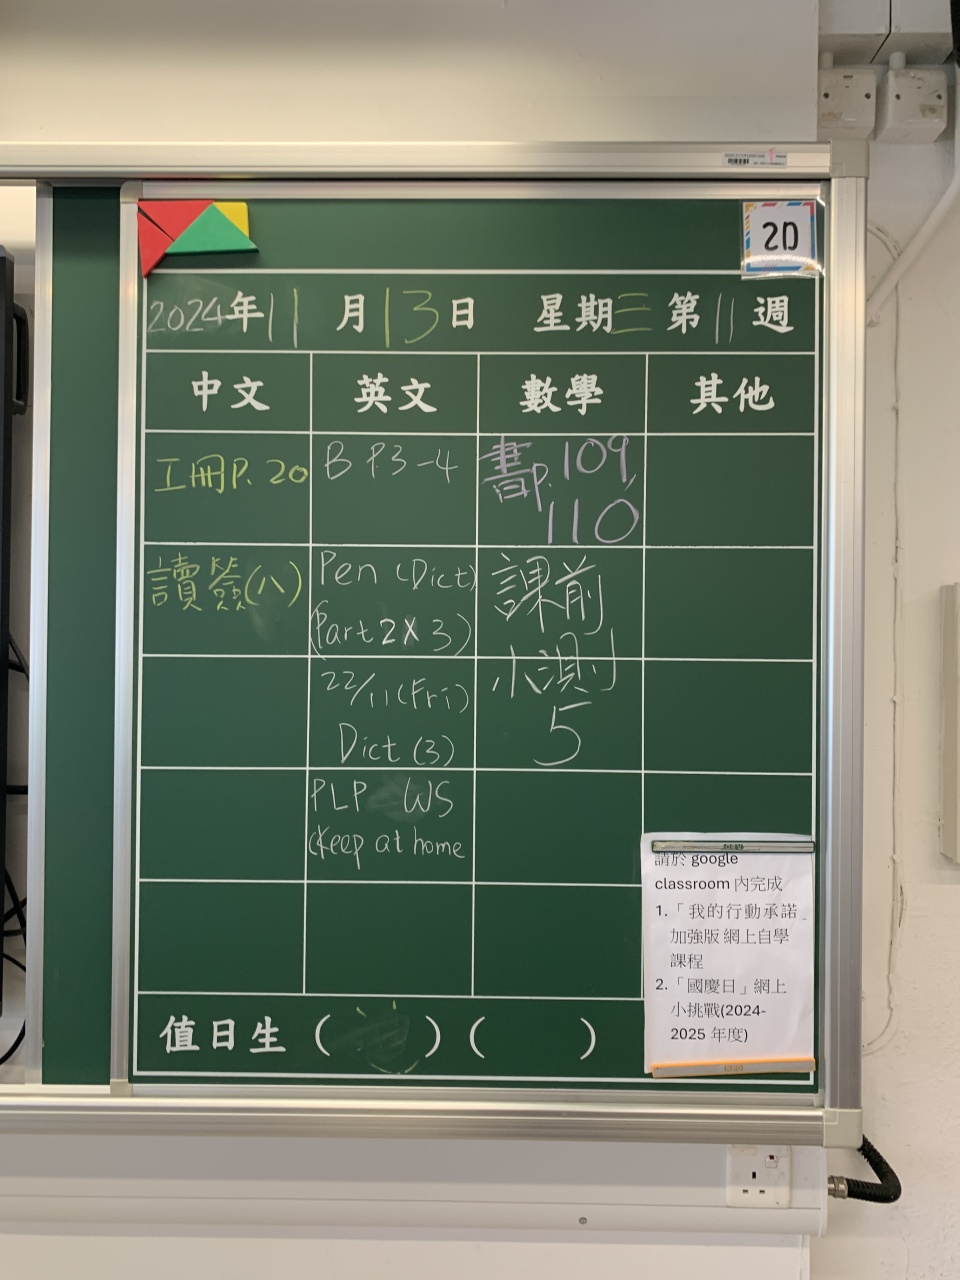 2D
2024年11月13日 星期三 第11週
中文 英文 數學 其他
工冊P.20
讀簽(八)
B P.3-4
Pen (Dict)
(Part 2 X 3)
22/11 (Fri)
Dict (3)
PLP WS
(Keep at home
書p.109,
110
課前
小測
5
請於 google
classroom 內完成
1.「我的行動承諾
加強版 網上自學
課程
2.「國慶日」網上
小挑戰(2024-
2025 年度)
值日生 ( ) ( )